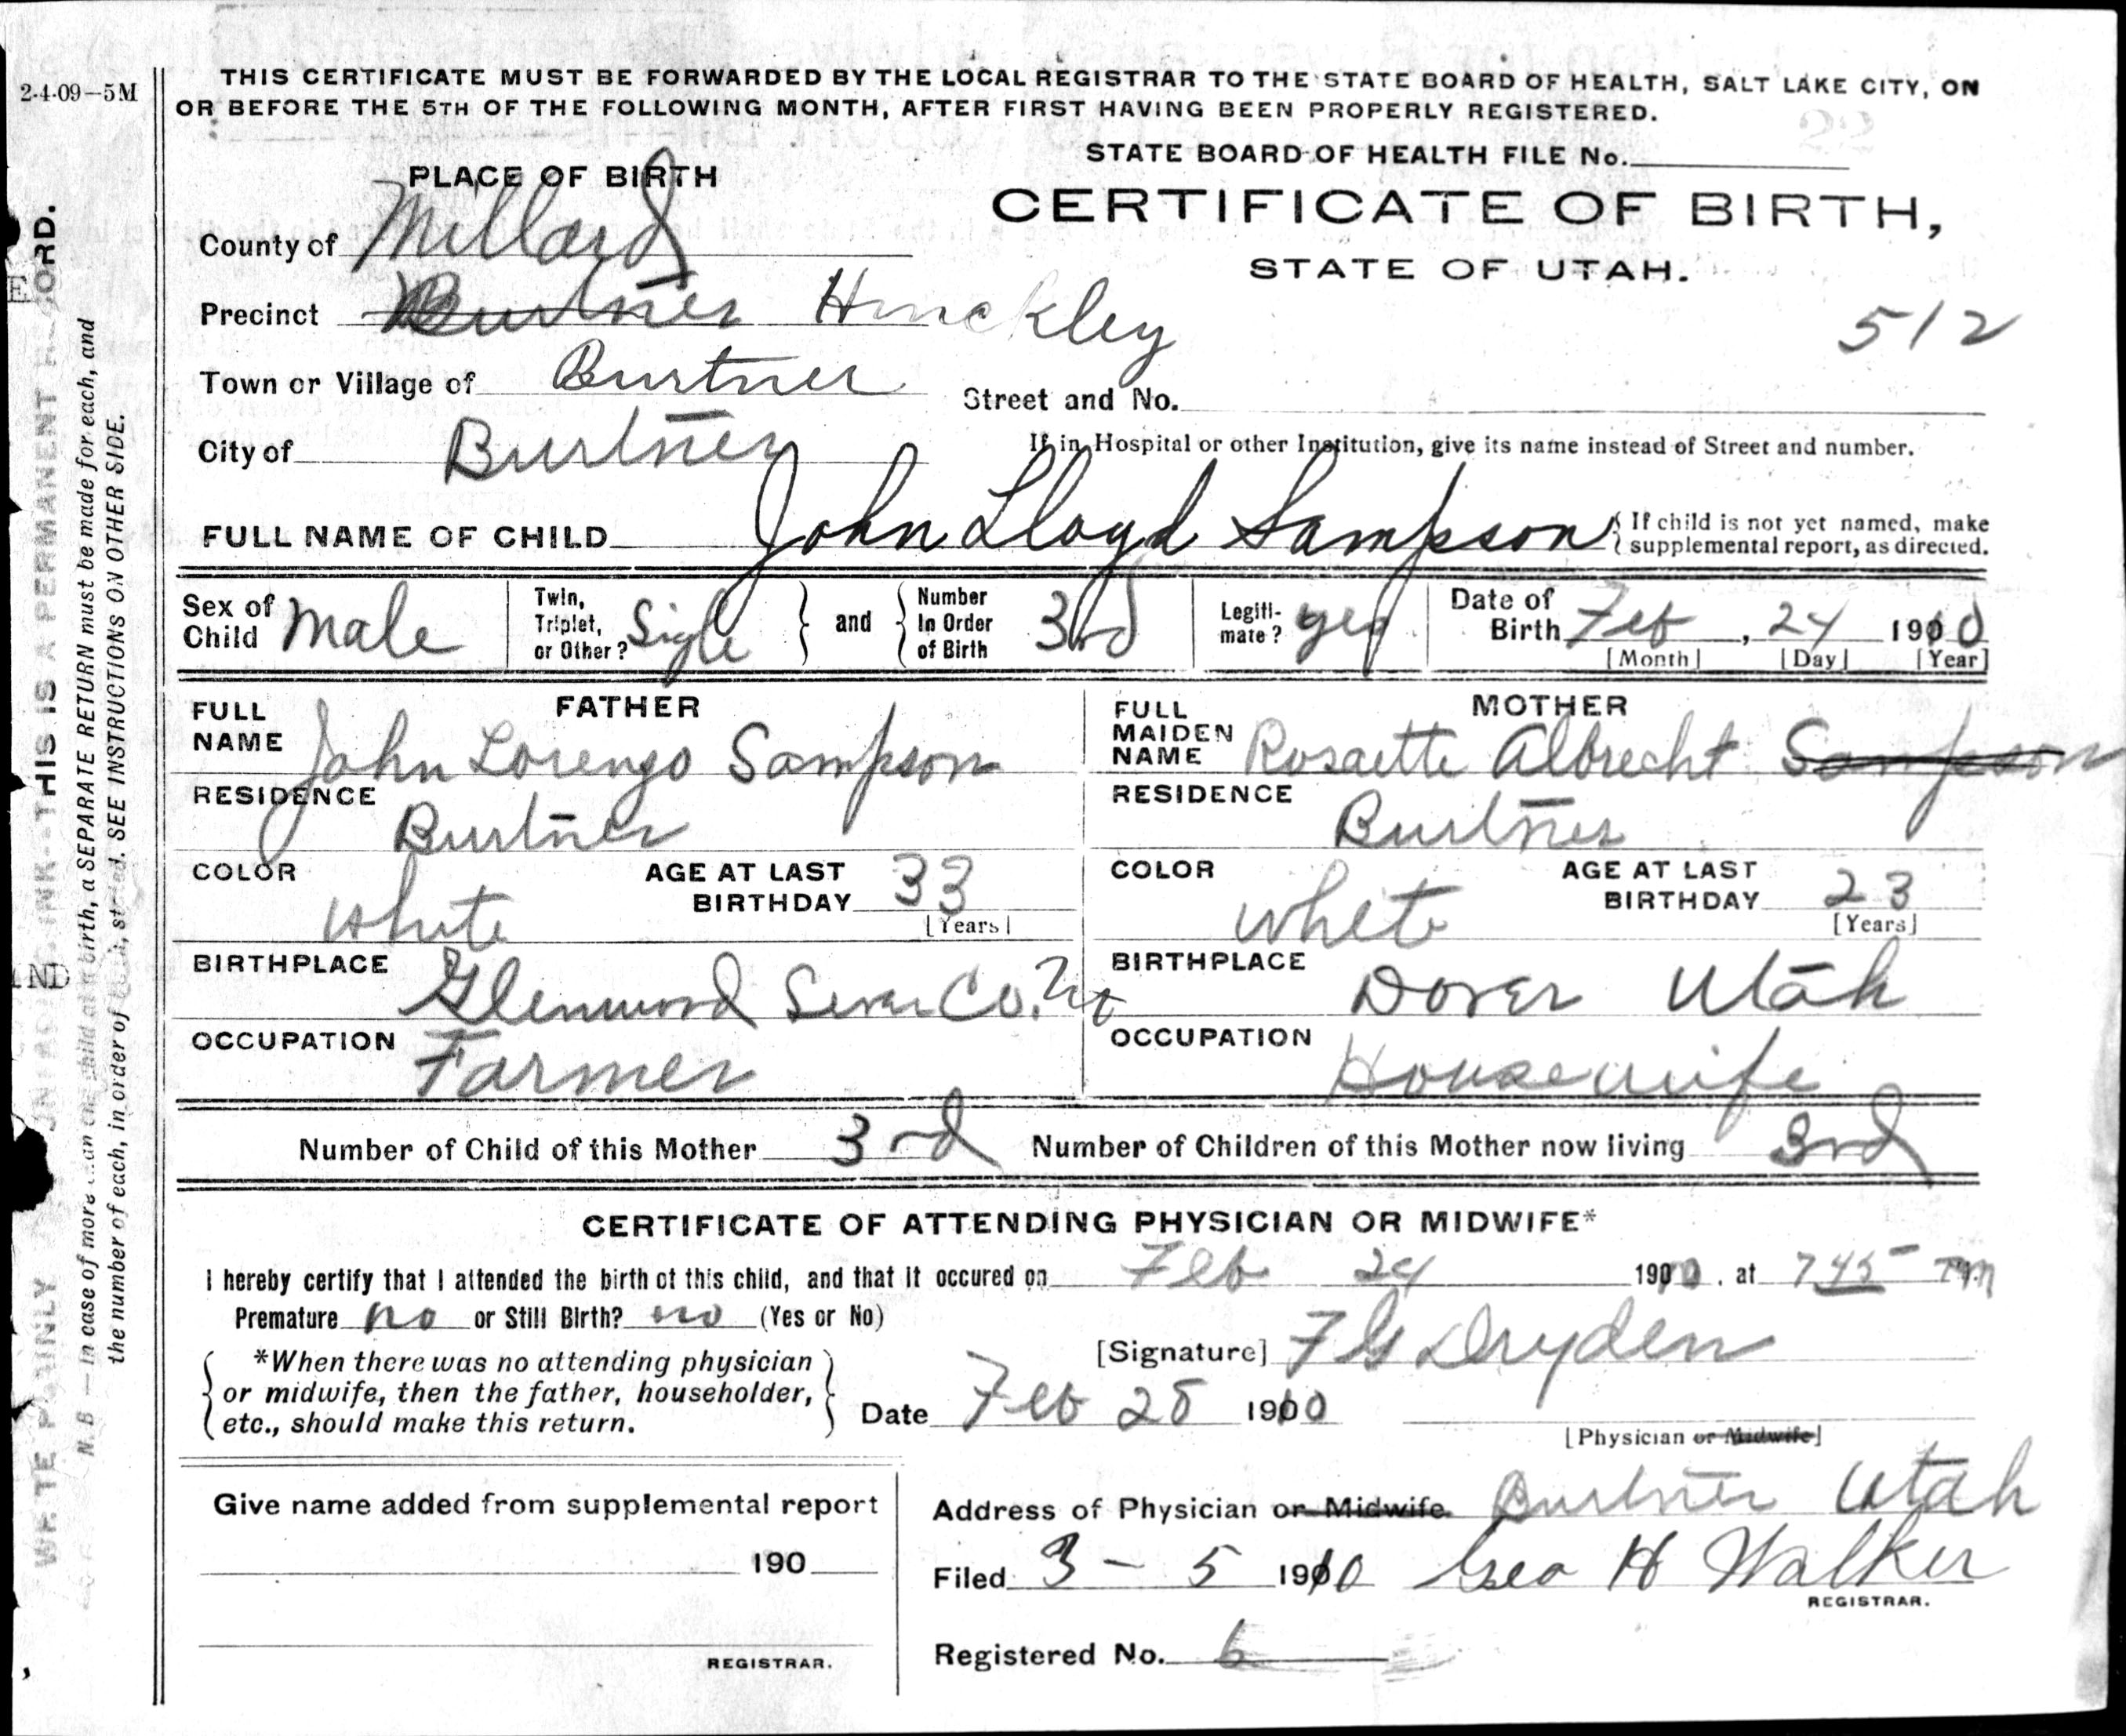 2-4-09-5M
THIS CERTIFICATE MUST BE FORWARDED BY THE LOCAL REGISTRAR TO THE STATE BOARD OF HEALTH, SALT LAKE CITY, ON
OR BEFORE THE 5TH OF THE FOLLOWING MONTH, AFTER FIRST HAVING BEEN PROPERLY REGISTERED.
STATE BOARD OF HEALTH FILE No.
PLACE OF BIRTH
CERTIFICATE OF BIRTH,
STATE OF UTAH.
County of Millard
512
Precinct Burtner Hinckley
Town or Village of Burtner
Street and No.
City of Burtner
If in Hospital or other Institution, give its name instead of Street and number.
FULL NAME OF CHILD John Lloyd Sampson
If child is not yet named, make
supplemental report, as directed.
Sex of Child Male
Twin, Triplet, or Other? Sigle
and
Number In Order of Birth 3rd
Legitimate? yes
Date of Birth Feb, 24 1910
[Month] [Day] [Year]
FATHER
FULL NAME John Lorenzo Sampson
RESIDENCE
Burtner
COLOR
White
AGE AT LAST BIRTHDAY 33
[Years]
BIRTHPLACE
Glenwood Sevier Co. Ut
OCCUPATION
Farmer
MOTHER
FULL MAIDEN NAME Rosaette Albrecht Sampson
RESIDENCE
Burtner
COLOR
White
AGE AT LAST BIRTHDAY 23
[Years]
BIRTHPLACE
Dover Utah
OCCUPATION
Housewife
Number of Child of this Mother 3rd
Number of Children of this Mother now living 3rd
CERTIFICATE OF ATTENDING PHYSICIAN OR MIDWIFE*
I hereby certify that I attended the birth of this child, and that it occured on Feb 24 1910, at 745
Premature no or Still Birth? no (Yes or No)
*When there was no attending physician
or midwife, then the father, householder,
etc., should make this return.
[Signature] F G Dryden
Date Feb 28 1910
[Physician or Midwife]
Give name added from supplemental report
190
REGISTRAR.
Address of Physician or Midwife Burtner Utah
Filed 3 - 5 1910 Geo H Walker
REGISTRAR.
Registered No. 6
WRITE PLAINLY INK-THIS IS A PERMANENT RECORD.
N.B.—In case of more than one child at a birth, a SEPARATE RETURN must be made for each, and
the number of each, in order of birth, stated. SEE INSTRUCTIONS ON OTHER SIDE.